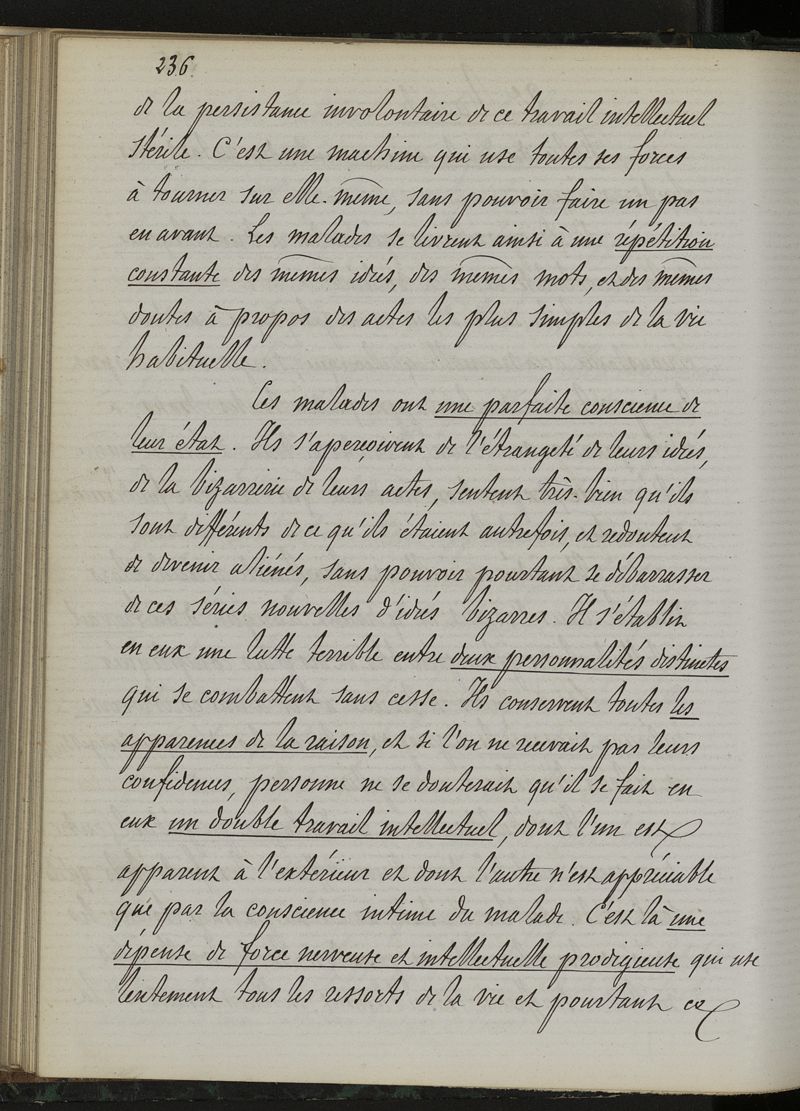 236.
de la persistance involontaire de ce travail intellectuel
stérile. C'est une machine qui use toutes ses forces
à tourner sur elle-même, sans pouvoir faire un pas
en avant. Les malades se livrent ainsi à une répétition
constante des mêmes idées, des mêmes mots, et des mêmes
doutes à propos des actes les plus simples de la vie
habituelle.
Ces malades ont une parfaite conscience de
leur état. Ils s'aperçoivent de l'étrangeté de leurs idées,
de la bizarrerie de leurs actes, sentent très-bien qu'ils
sont différents de ce qu'ils étaient autrefois, et redoutent
de devenir aliénés, sans pouvoir pourtant se débarrasser
de ces séries nouvelles d'idées bizarres. Il s'établit
en eux une lutte terrible entre deux personnalités distinctes
qui se combattent sans cesse. Ils conservent toutes les
apparences de la raison, et si l'on ne recevait pas leurs
confidences, personne ne se douterait qu'il se fait en
eux un double travail intellectuel, dont l'un est
apparent à l'extérieur et dont l'autre n'est appréciable
que par la conscience intime du malade. C'est là une
dépense de force nerveuse et intellectuelle prodigieuse qui use
lentement tous les ressorts de la vie et pourtant ces